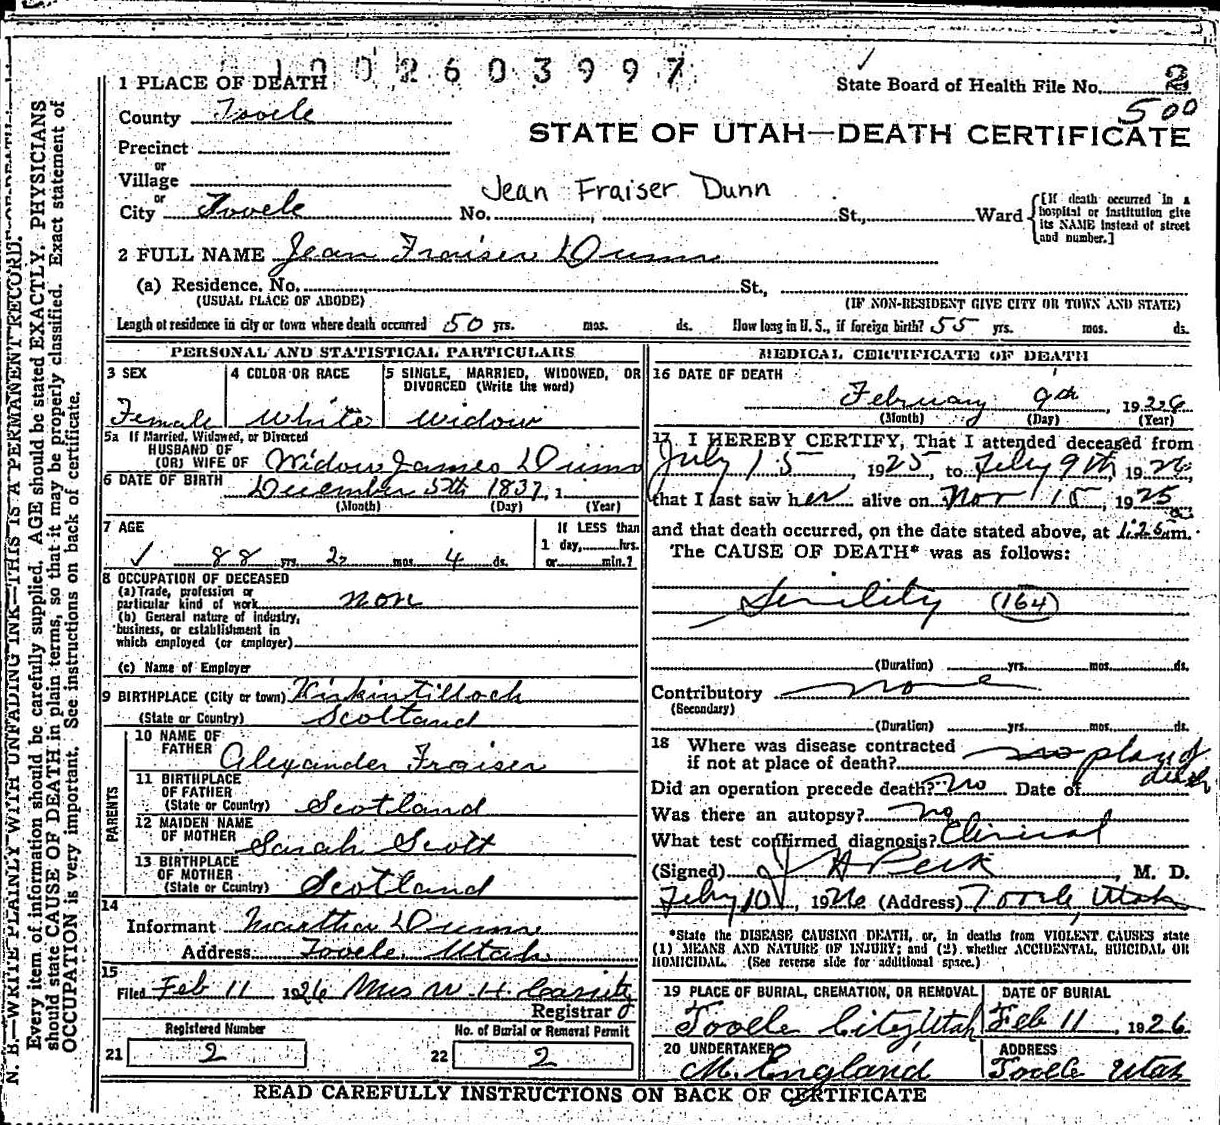 1002603997
1 PLACE OF DEATH
State Board of Health File No. 2
500
County Tooele
STATE OF UTAH—DEATH CERTIFICATE
Precinct
or
Village
or
Jean Fraiser Dunn
City Tooele No. , St., Ward
[If death occurred in a hospital or institution give its NAME instead of street and number.]
2 FULL NAME Jean Fraiser Dunn
(a) Residence. No. St.,
(USUAL PLACE OF ABODE) (IF NON-RESIDENT GIVE CITY OR TOWN AND STATE)
Length of residence in city or town where death occurred 50 yrs. mos. ds. How long in U. S., if foreign birth? 55 yrs. mos. ds.
PERSONAL AND STATISTICAL PARTICULARS
3 SEX 4 COLOR OR RACE 5 SINGLE, MARRIED, WIDOWED, OR
DIVORCED (Write the word)
Female White Widow
5a If Married, Widowed, or Divorced
HUSBAND OF
(OR) WIFE OF Widow James Dunn
6 DATE OF BIRTH December 5th 1837, 1
(Month) (Day) (Year)
7 AGE If LESS than
1 day, hrs.
88 yrs. 2 mos. 4 ds. or min.?
8 OCCUPATION OF DECEASED
(a) Trade, profession or
particular kind of work non
(b) General nature of industry,
business, or establishment in
which employed (or employer)
(c) Name of Employer
9 BIRTHPLACE (City or town) Kirkintilloch
(State or Country) Scotland
PARENTS
10 NAME OF
FATHER Alexander Fraiser
11 BIRTHPLACE
OF FATHER
(State or Country) Scotland
12 MAIDEN NAME
OF MOTHER Sarah Scott
13 BIRTHPLACE
OF MOTHER
(State or Country) Scotland
14
Informant Martha Dunn
Address Tooele Utah
15
Filed Feb 11 1926 Mrs W. H.
Registrar
Registered Number No. of Burial or Removal Permit
21 2 22 2
MEDICAL CERTIFICATE OF DEATH
16 DATE OF DEATH
February 9th, 1926
(Month) (Day) (Year)
17 I HEREBY CERTIFY, That I attended deceased from
July 15 1925, to Feby 9th 1926,
that I last saw her alive on Nov 15, 1925
and that death occurred, on the date stated above, at 1:25 am.
The CAUSE OF DEATH* was as follows:
Senility (164)
(Duration) yrs. mos. ds.
Contributory none
(Secondary)
(Duration) yrs. mos. ds.
18 Where was disease contracted
if not at place of death? place of
death
Did an operation precede death? No Date of
Was there an autopsy? no
What test confirmed diagnosis? Clinical
(Signed) J H Peck, M. D.
Feby 10, 1926 (Address) Tooele, Utah
*State the DISEASE CAUSING DEATH, or, in deaths from VIOLENT CAUSES state
(1) MEANS AND NATURE OF INJURY; and (2) whether ACCIDENTAL, SUICIDAL OR
HOMICIDAL. (See reverse side for additional space.)
19 PLACE OF BURIAL, CREMATION, OR REMOVAL DATE OF BURIAL
Tooele City, Utah Feb 11, 1926
20 UNDERTAKER ADDRESS
M. England Tooele Utah
READ CAREFULLY INSTRUCTIONS ON BACK OF CERTIFICATE
N. B.—WRITE PLAINLY WITH UNFADING INK—THIS IS A PERMANENT RECORD.
Every item of information should be carefully supplied. AGE should be stated EXACTLY. PHYSICIANS
should state CAUSE OF DEATH in plain terms, so that it may be properly classified. Exact statement of
OCCUPATION is very important. See instructions on back of certificate.